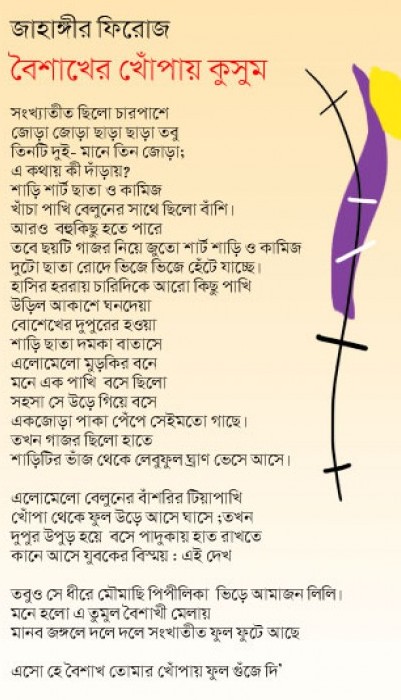 জাহাঙ্গীর ফিরোজ
বৈশাখের খোঁপায় কুসুম
সংখ্যাতীত ছিলো চারপাশে
জোড়া জোড়া ছাড়া ছাড়া তবু
তিনটি দুই- মানে তিন জোড়া;
এ কথায় কী দাঁড়ায়?
শাড়ি শার্ট ছাতা ও কামিজ
খাঁচা পাখি বেলুনের সাথে ছিলো বাঁশি।
আরও বহুকিছু হতে পারে
তবে ছয়টি গাজর নিয়ে জুতো শার্ট শাড়ি ও কামিজ
দুটো ছাতা রোদে ভিজে ভিজে হেঁটে যাচ্ছে।
হাসির হররায় চারিদিকে আরো কিছু পাখি
উড়িল আকাশে ঘনদেয়া
বোশেখের দুপুরের হওয়া
শাড়ি ছাতা দমকা বাতাসে
এলোমেলো মুড়কির বনে
মনে এক পাখি বসে ছিলো
সহসা সে উড়ে গিয়ে বসে
একজোড়া পাকা পেঁপে সেইমতো গাছে।
তখন গাজর ছিলো হাতে
শাড়িটির ভাঁজ থেকে লেবুফুল ঘ্রাণ ভেসে আসে।
এলোমেলো বেলুনের বাঁশরির টিয়াপাখি
খোঁপা থেকে ফুল উড়ে আসে ঘাসে ;তখন
দুপুর উপুড় হয়ে বসে পাদুকায় হাত রাখতে
কানে আসে যুবকের বিস্ময় : এই দেখ
তবুও সে ধীরে মৌমাছি পিপীলিকা ভিড়ে আমাজন লিলি।
মনে হলো এ তুমুল বৈশাখী মেলায়
মানব জঙ্গলে দলে দলে সংখাতীত ফুল ফুটে আছে
এসো হে বৈশাখ তোমার খোঁপায় ফুল গুঁজে দি'